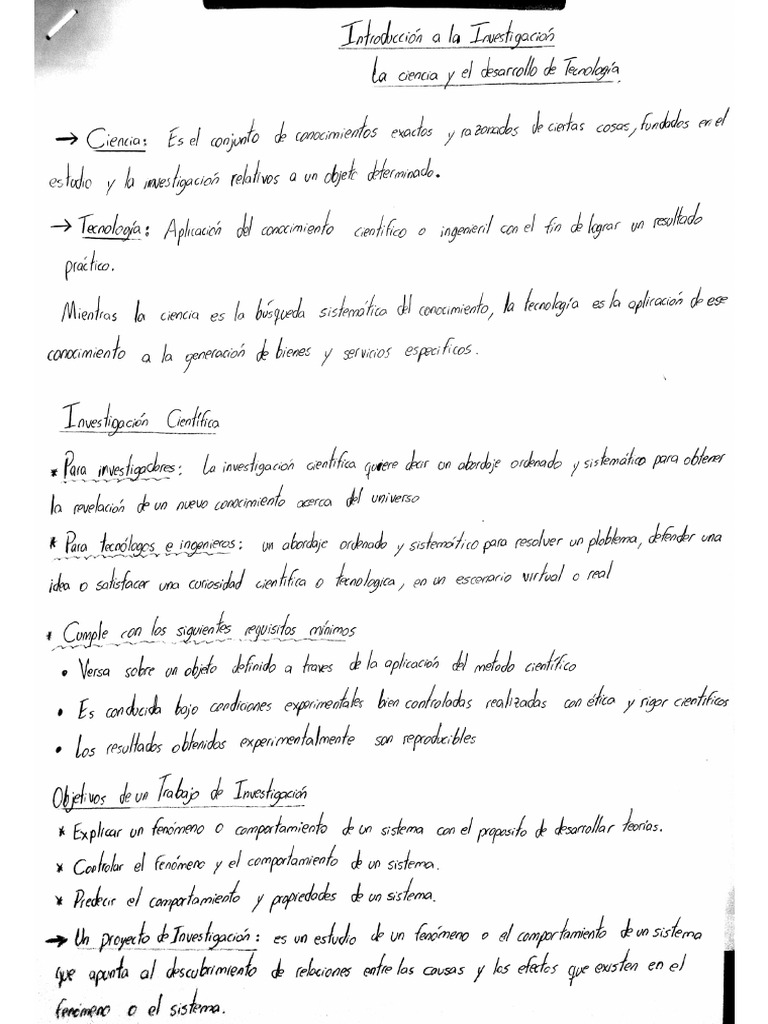 Introducción a la Investigación
La ciencia y el desarrollo de Tecnología.
→ Ciencia: Es el conjunto de conocimientos exactos y razonados de ciertas cosas, fundados en el
estudio y la investigación relativos a un objeto determinado.
→ Tecnología: Aplicación del conocimiento científico o ingenieril con el fin de lograr un resultado
práctico.
Mientras la ciencia es la búsqueda sistemática del conocimiento, la tecnología es la aplicación de ese
conocimiento a la generación de bienes y servicios especificos.
Investigación Científica
* Para investigadores: La investigación científica quiere decir un abordaje ordenado y sistemático para obtener
la revelación de un nuevo conocimiento acerca del universo
* Para tecnólogos e ingenieros: un abordaje ordenado y sistemático para resolver un ploblema, defender una
idea o satisfacer una curiosidad científica o tecnologica, en un escenario virtual o real
* Cumple con los siguientes requisitos mínimos
• Versa sobre un objeto definido a traves de la aplicación del metodo científico
• Es conducida bajo condiciones experimentales bien controladas realizadas con ética y rigor científicos
• Los resultados obtenidos experimentalmente son reproducibles
Objetivos de un Trabajo de Investigación
* Explicar un fenómeno o comportamiento de un sistema con el proposito de desarrollar teorías.
* Controlar el fenómeno y el comportamiento de un sistema.
* Predecir el comportamiento y propiedades de un sistema.
→ Un proyecto de Investigación: es un estudio de un fenómeno o el comportamiento de un sistema
que apunta al descubrimiento de relaciones entre las causas y los efectos que existen en el
fenómeno o el sistema.